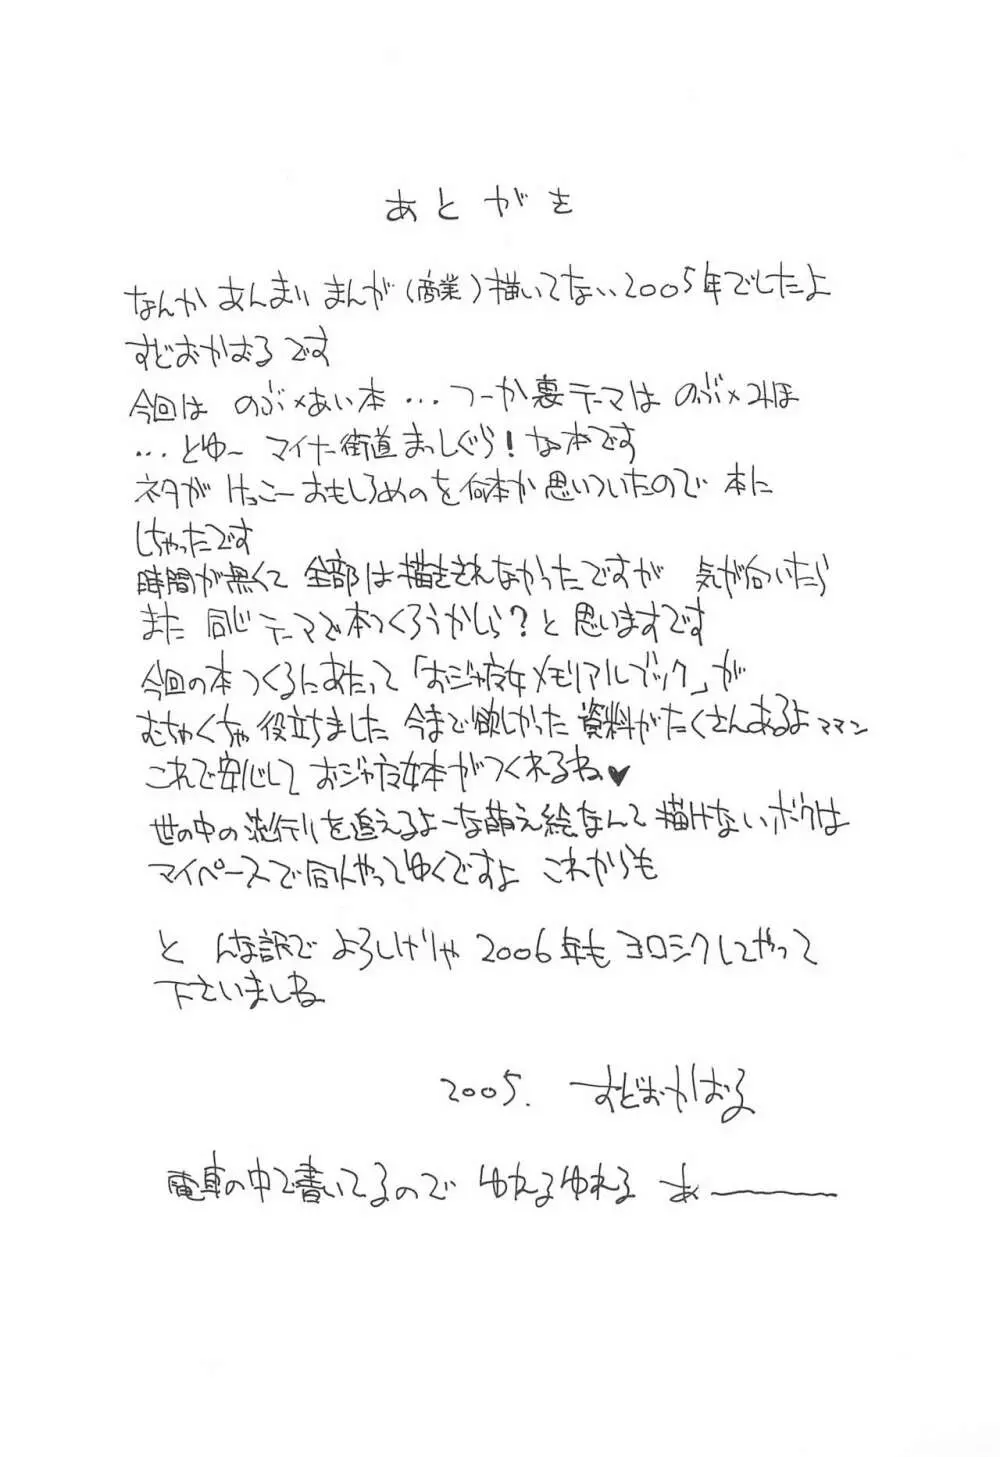 あとがき
なんか あんまり まんが(商業)描いてない2005年でしたよ
すどおかおるです
今回は のぶ×あい本 ... つーか裏テーマは のぶ×みほ
...とゆ〜 マイナー街道まっしぐら!な本です
ネタが けっこーおもしろめのを何本か思いついたので 本に
しちゃったです
時間が無くて 全部は描ききれなかったですが 気が向いたら
また 同じテーマで本つくろうかしら?と思いますです
今回の本つくるにあたって「おジャ魔女メモリアルブック」が
むちゃくちゃ役立ちました 今まで欲しかった資料がたくさんあるよママン
これで安心して おジャ魔女本がつくれるね♥
世の中の流行りを追えるよーな萌え絵なんて描けないボクは
マイペースで同人やってゆくですよ これからも
と んな訳で よろしけりゃ 2006年もヨロシクしてやって
下さいましね
2005. すどおかおる
電車の中で書いてるので ゆれるゆれる あ――――